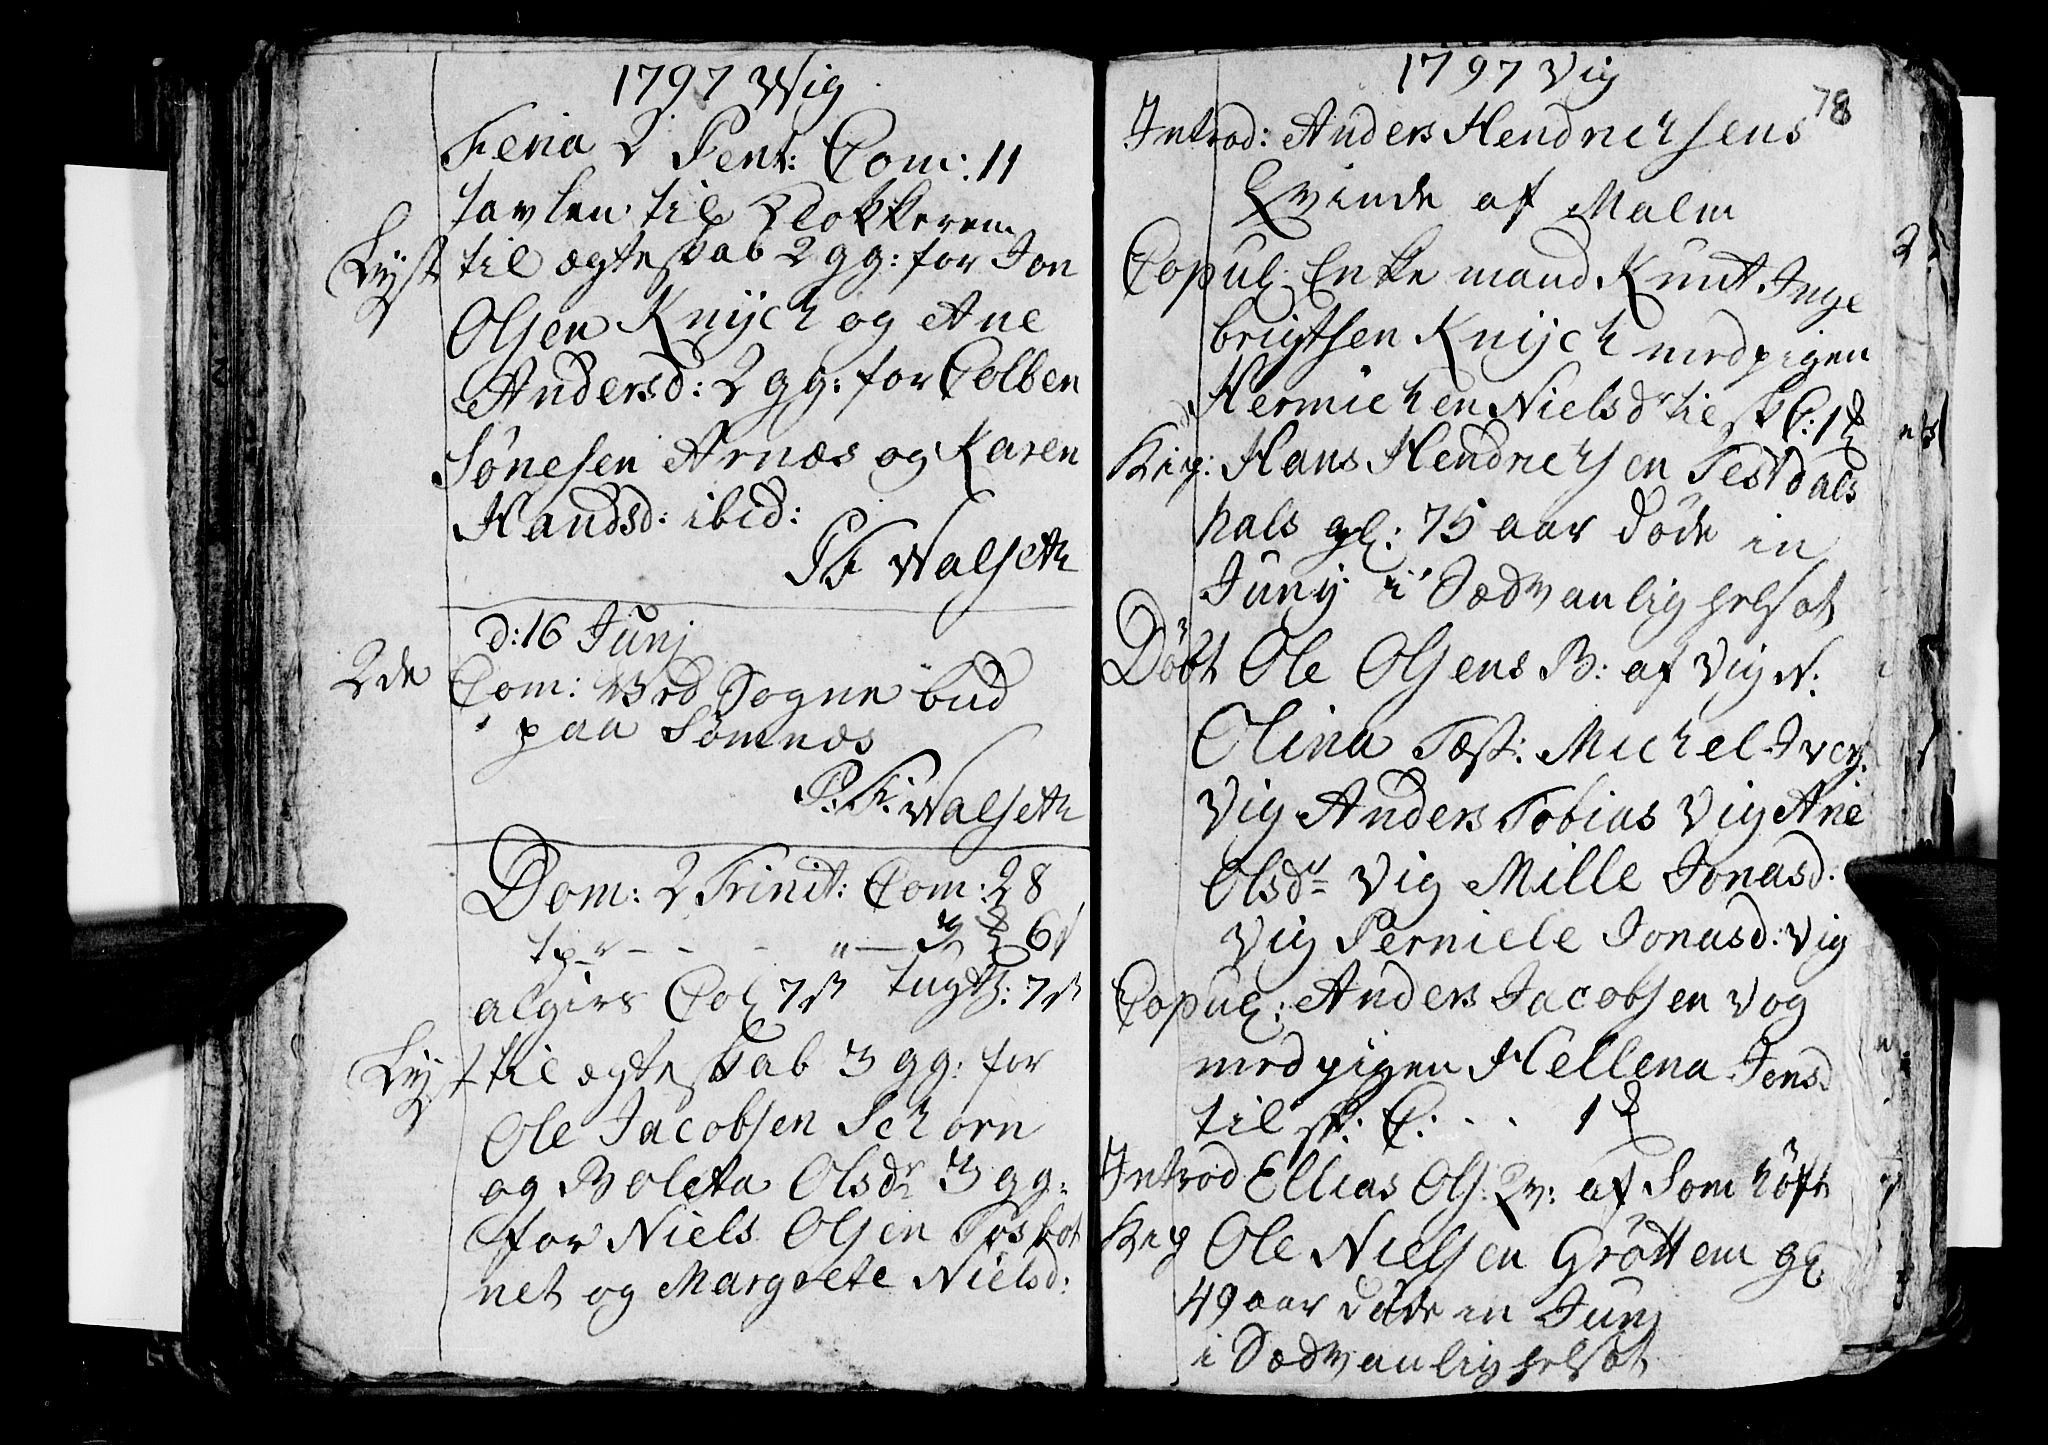 1797 Wig
Feria 2 Pent: Com: 11
tavlen til Klokkeren
Lyst til ægteskab 2 gg: for Jon
Olsen Knÿch og Ane
Andersd: 2 gg: for Colben
Sönesen Arnæs og Karen
Handsd: ibid:
Walseth
d: 16 Junj
2de Com: ved Sogne bud
paa Sömnæs
P: Fr: Walseth
Dom: 2 Trinit: Com: 28
6 ß
Col 7 ß tugth: 7 ß
Lyst til ægteskab 3 gg: for
Ole Jacobsen Schorn
og Boleta Olsdr 3 gg:
for Niels Olsen Toskot
net og Margrete Nielsd:
1797 Vig
78
Introd: Anders Hendrichsens
Qvinde af Malm
Copul: Enkemand Knut Inge
brigtsen Knÿch med pigen
Hermichen Nielsdr til sk C: 1
Hans Hendrichsen Testdals
hals gl: 75 aar döde in
Junij i Sædvanlig helsot
Döbt Ole Olsens B: af Vig N:
Olina Test: Michel Ivers:
Vig Anders Tobias Vig Ane
Olsdr Vig Mille Jonasd:
Vig Perniele Jonasd: Vig
Copul: Anders Jacobsen Vog
med pigen Hellena Jensd
til sk: C: - - 1
Introd Ellias Ols: Qv: af Som höft
Ole Nielsen Gröttem gl
49 aar döde in Junj
i Sædvanlig helsot